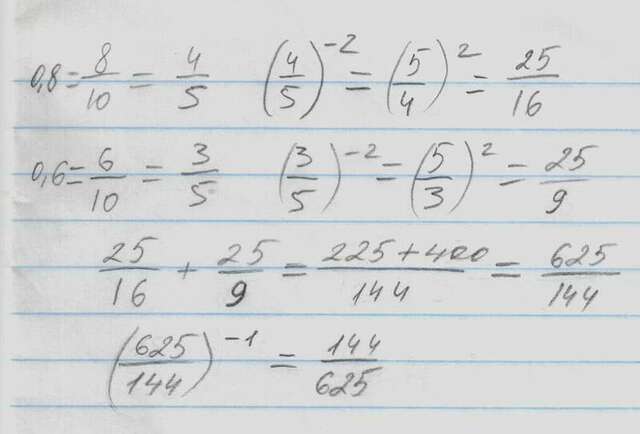 0,8 = 8/10 = 4/5 (4/5)^-2 = (5/4)^2 = 25/16
0,6 = 6/10 = 3/5 (3/5)^-2 = (5/3)^2 = 25/9
25/16 + 25/9 = 225+400/144 = 625/144
(625/144)^-1 = 144/625